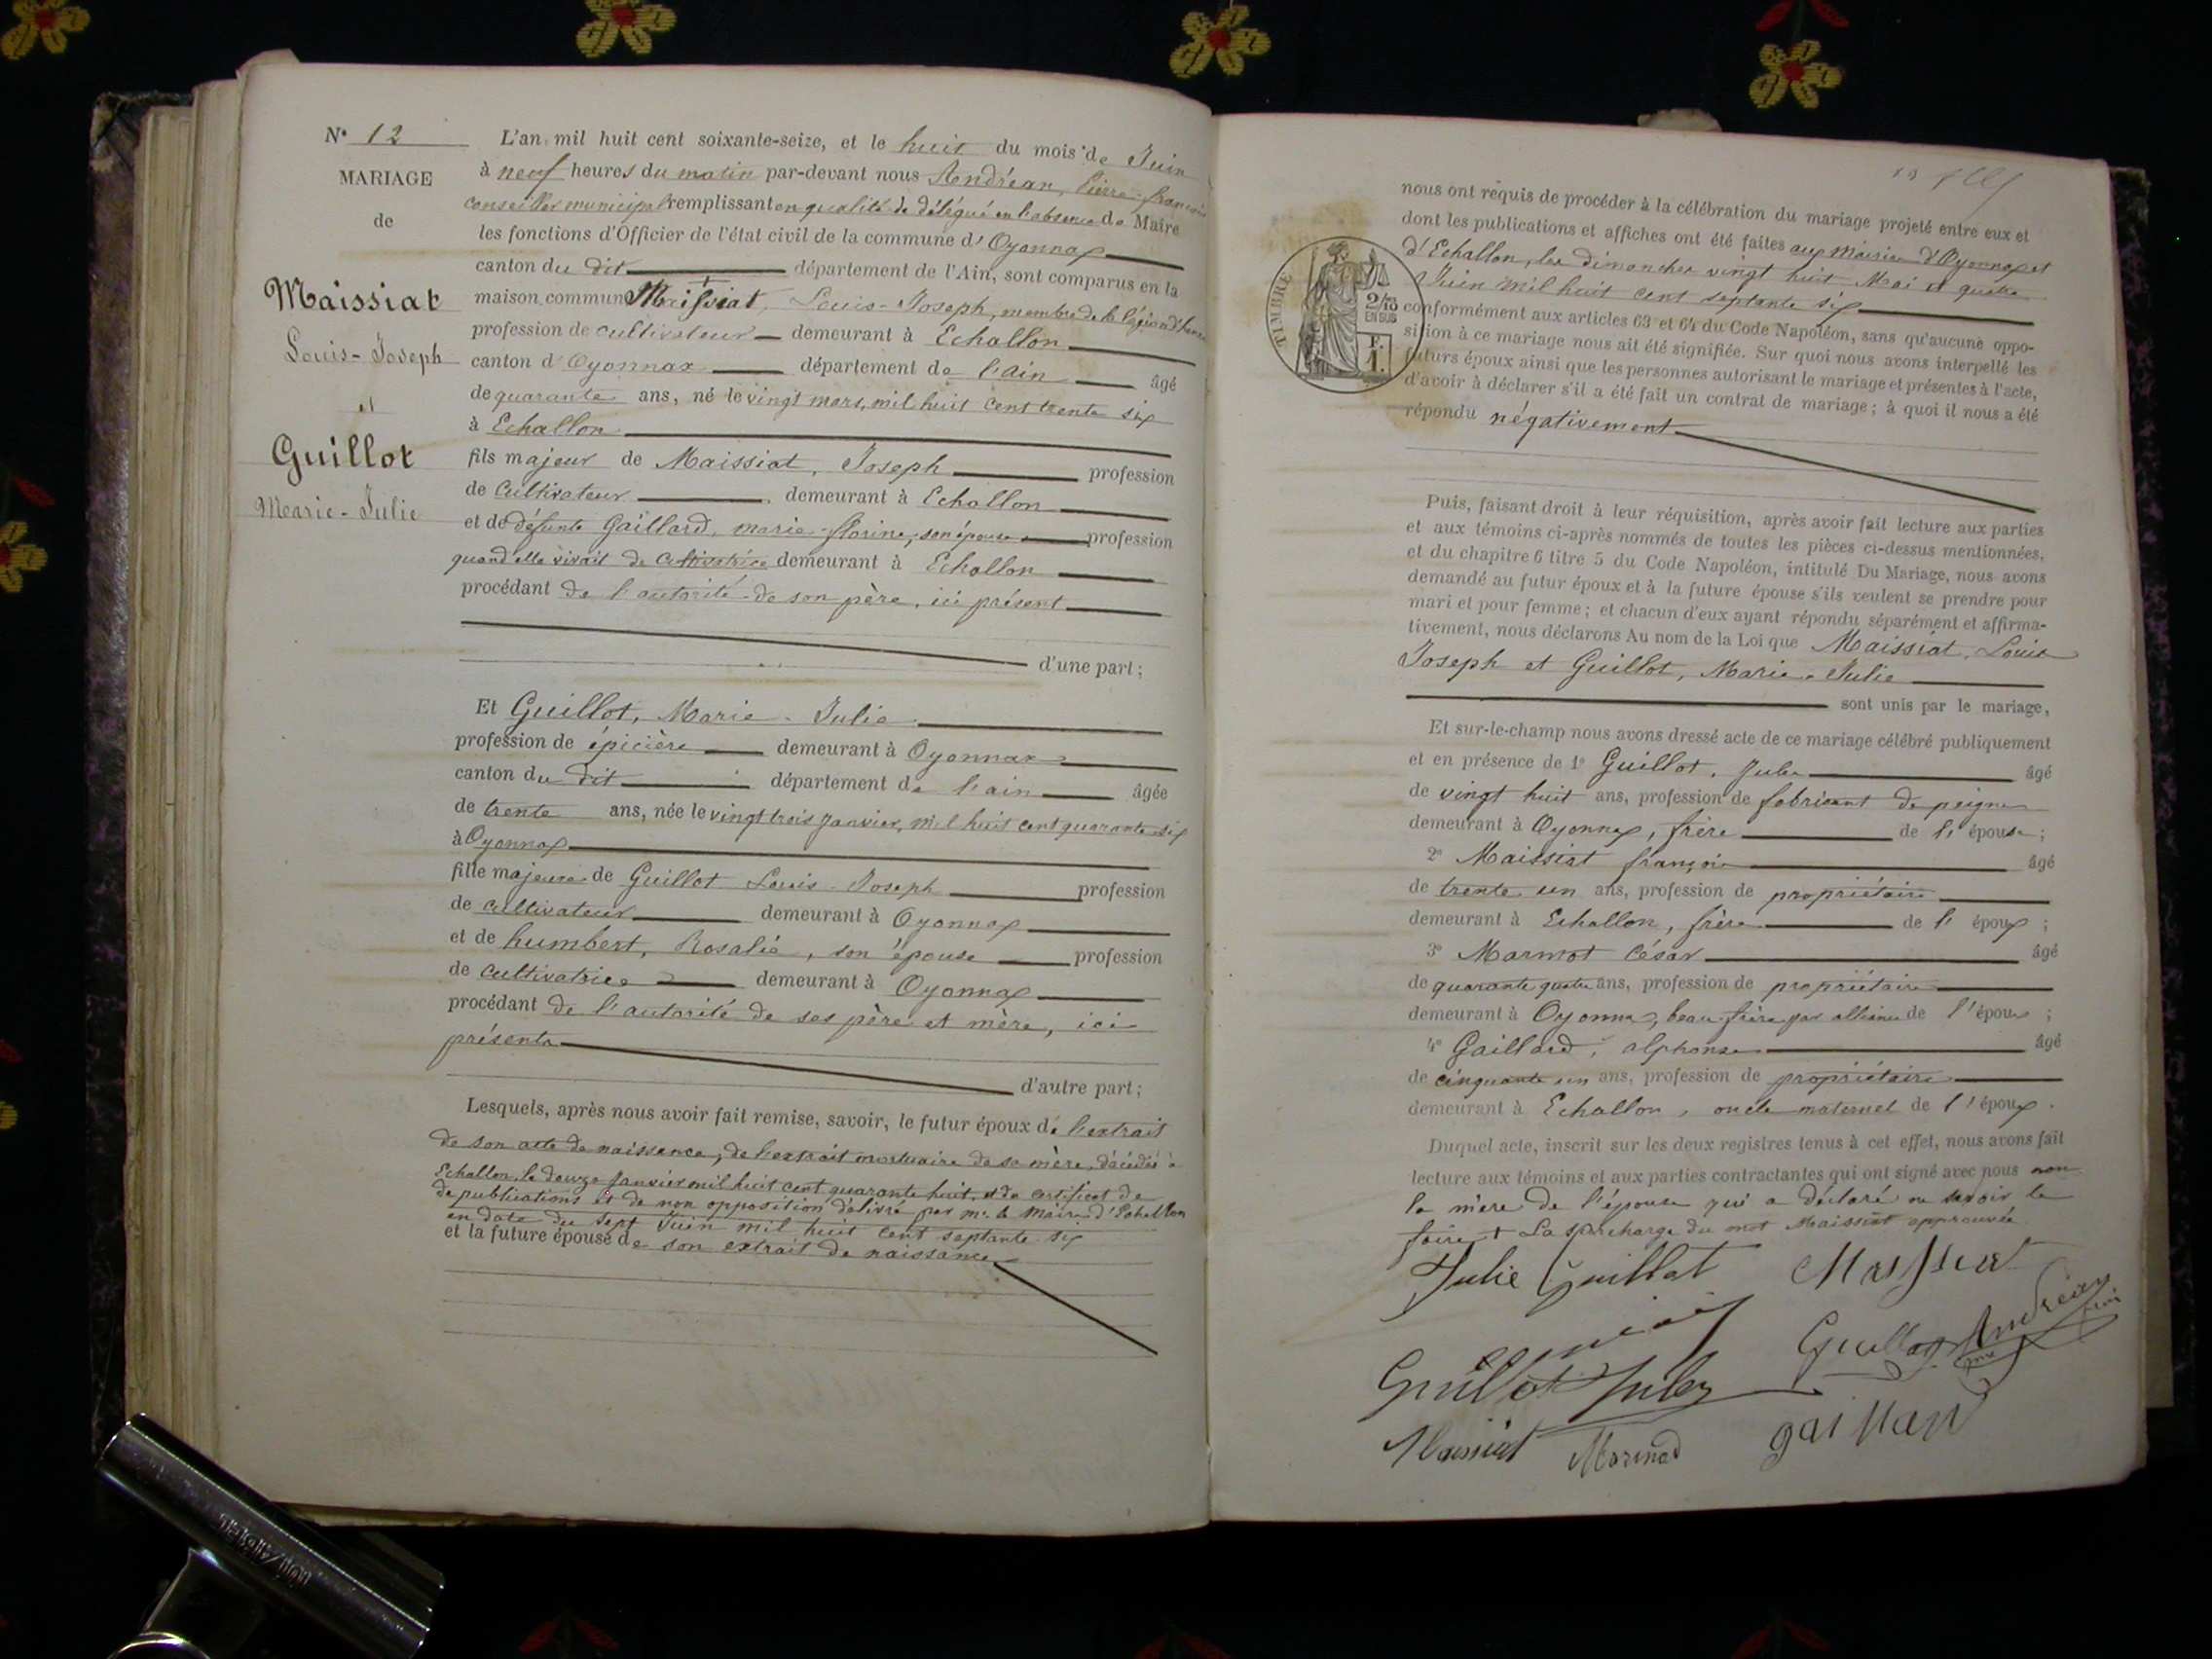 N° 12
MARIAGE
de
Maissiat
Louis-Joseph
et
Guillot
Marie-Julie
L'an mil huit cent soixante-seize, et le huit du mois de Juin
à neuf heures du matin par-devant nous Andréan, Pierre-françois
conseiller municipal remplissant en qualité de délégué en l'absence de Maire
les fonctions d'Officier de l'état civil de la commune d'Oyonnax
canton du dit département de l'Ain, sont comparus en la
maison commune Maissiat, Louis-Joseph, membre de la légion d'honneur
profession de cultivateur demeurant à Echallon
canton d'Oyonnax département de l'ain âgé
de quarante ans, né le vingt mars, mil huit cent trente six
à Echallon
fils majeur de Maissiat, Joseph profession
de cultivateur demeurant à Echallon
et de défunte Gaillard, marie-florine, son épouse profession
quand elle vivait de cultivatrice demeurant à Echallon
procédant de l'autorité de son père, ici présent
d'une part;
Et Guillot, Marie-Julie
profession de épicière demeurant à Oyonnax
canton du dit département de l'ain âgée
de trente ans, née le vingt trois Janvier, mil huit cent quarante six
à Oyonnax
fille majeure de Guillot Louis-Joseph profession
de cultivateur demeurant à Oyonnax
et de humbert, Rosalie, son épouse profession
de cultivatrice demeurant à Oyonnax
procédant de l'autorité de ses père et mère, ici
présents
d'autre part;
Lesquels, après nous avoir fait remise, savoir, le futur époux de l'extrait
de son acte de naissance, de l'extrait mortuaire de sa mère, décédée à
Echallon, le douze Janvier mil huit cent quarante huit, et du certificat de
de publications et de non opposition délivré par mr. le Maire d'Echallon
en date du sept Juin mil huit cent septante six
et la future épouse de son extrait de naissance
nous ont requis de procéder à la célébration du mariage projeté entre eux et
dont les publications et affiches ont été faites aux Mairies d'Oyonnax et
d'Echallon, les dimanches vingt huit Mai et quatre
Juin mil huit cent septante six
TIMBRE
2/10
EN SUS
F.
1.
conformément aux articles 63 et 64 du Code Napoléon, sans qu'aucune oppo-
sition à ce mariage nous ait été signifiée. Sur quoi nous avons interpellé les
futurs époux ainsi que les personnes autorisant le mariage et présentes à l'acte,
d'avoir à déclarer s'il a été fait un contrat de mariage; à quoi il nous a été
répondu négativement
Puis, faisant droit à leur réquisition, après avoir fait lecture aux parties
et aux témoins ci-après nommés de toutes les pièces ci-dessus mentionnées,
et du chapitre 6 titre 5 du Code Napoléon, intitulé Du Mariage, nous avons
demandé au futur époux et à la future épouse s'ils veulent se prendre pour
mari et pour femme; et chacun d'eux ayant répondu séparément et affirma-
tivement, nous déclarons Au nom de la Loi que Maissiat, Louis
Joseph et Guillot, Marie-Julie
sont unis par le mariage,
Et sur-le-champ nous avons dressé acte de ce mariage célébré publiquement
et en présence de 1° Guillot, Jules âgé
de vingt huit ans, profession de fabricant de peignes
demeurant à Oyonnax, frère de l'épouse;
2° Maissiat françois âgé
de trente un ans, profession de propriétaire
demeurant à Echallon, frère de l'époux;
3° Marmot César âgé
de quarante quatre ans, profession de propriétaire
demeurant à Oyonnax, beau-frère par alliance de l'époux;
4° Gaillard, alphonse âgé
de cinquante un ans, profession de propriétaire
demeurant à Echallon, oncle maternel de l'époux.
Duquel acte, inscrit sur les deux registres tenus à cet effet, nous avons fait
lecture aux témoins et aux parties contractantes qui ont signé avec nous non
la mère de l'épouse qui a déclaré ne savoir le
faire + La surcharge du mot Maissiat approuvée
Julie Guillot Maissiat
Guillot Andréan
Guillot Jules
Maissiat Marmod gaillard